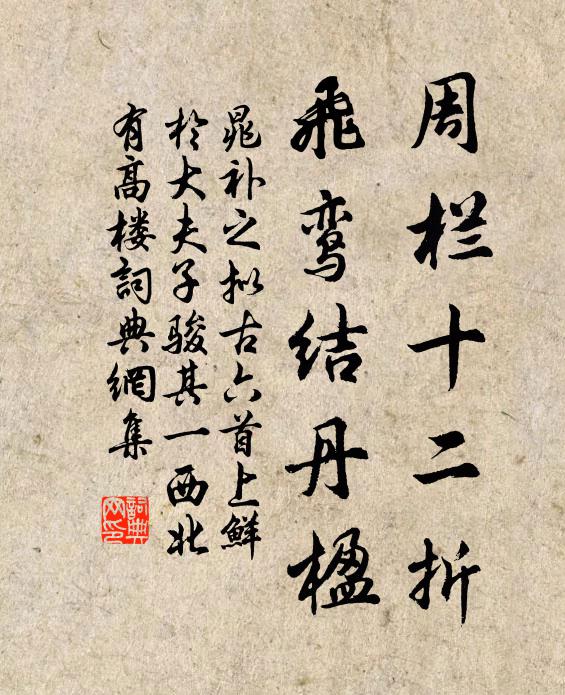 周栏十二折
飛鸾结丹楹
晁补之拟古六首上鲜
於大夫子骏其一西北
有高楼詞典網集
詞典
网印